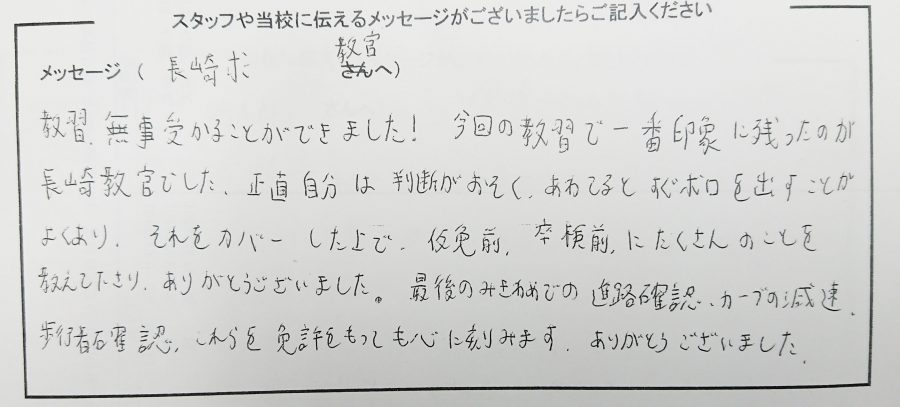 スタッフや当校に伝えるメッセージがございましたらご記入ください
教官
メッセージ ( 長崎 さんへ)
教習、無事受かることができました! 今回の教習で一番印象に残ったのが
長崎教官でした、正直自分は判断がおそく、あわてるとすぐボロを出すことが
よくあり、それをカバーした上で、仮免前、卒検前、にたくさんのことを
教えて下さり、ありがとうございました。最後のみきわめでの進路確認、カーブの減速、
歩行者確認、これらを免許をもっても心に刻みます、ありがとうございました、